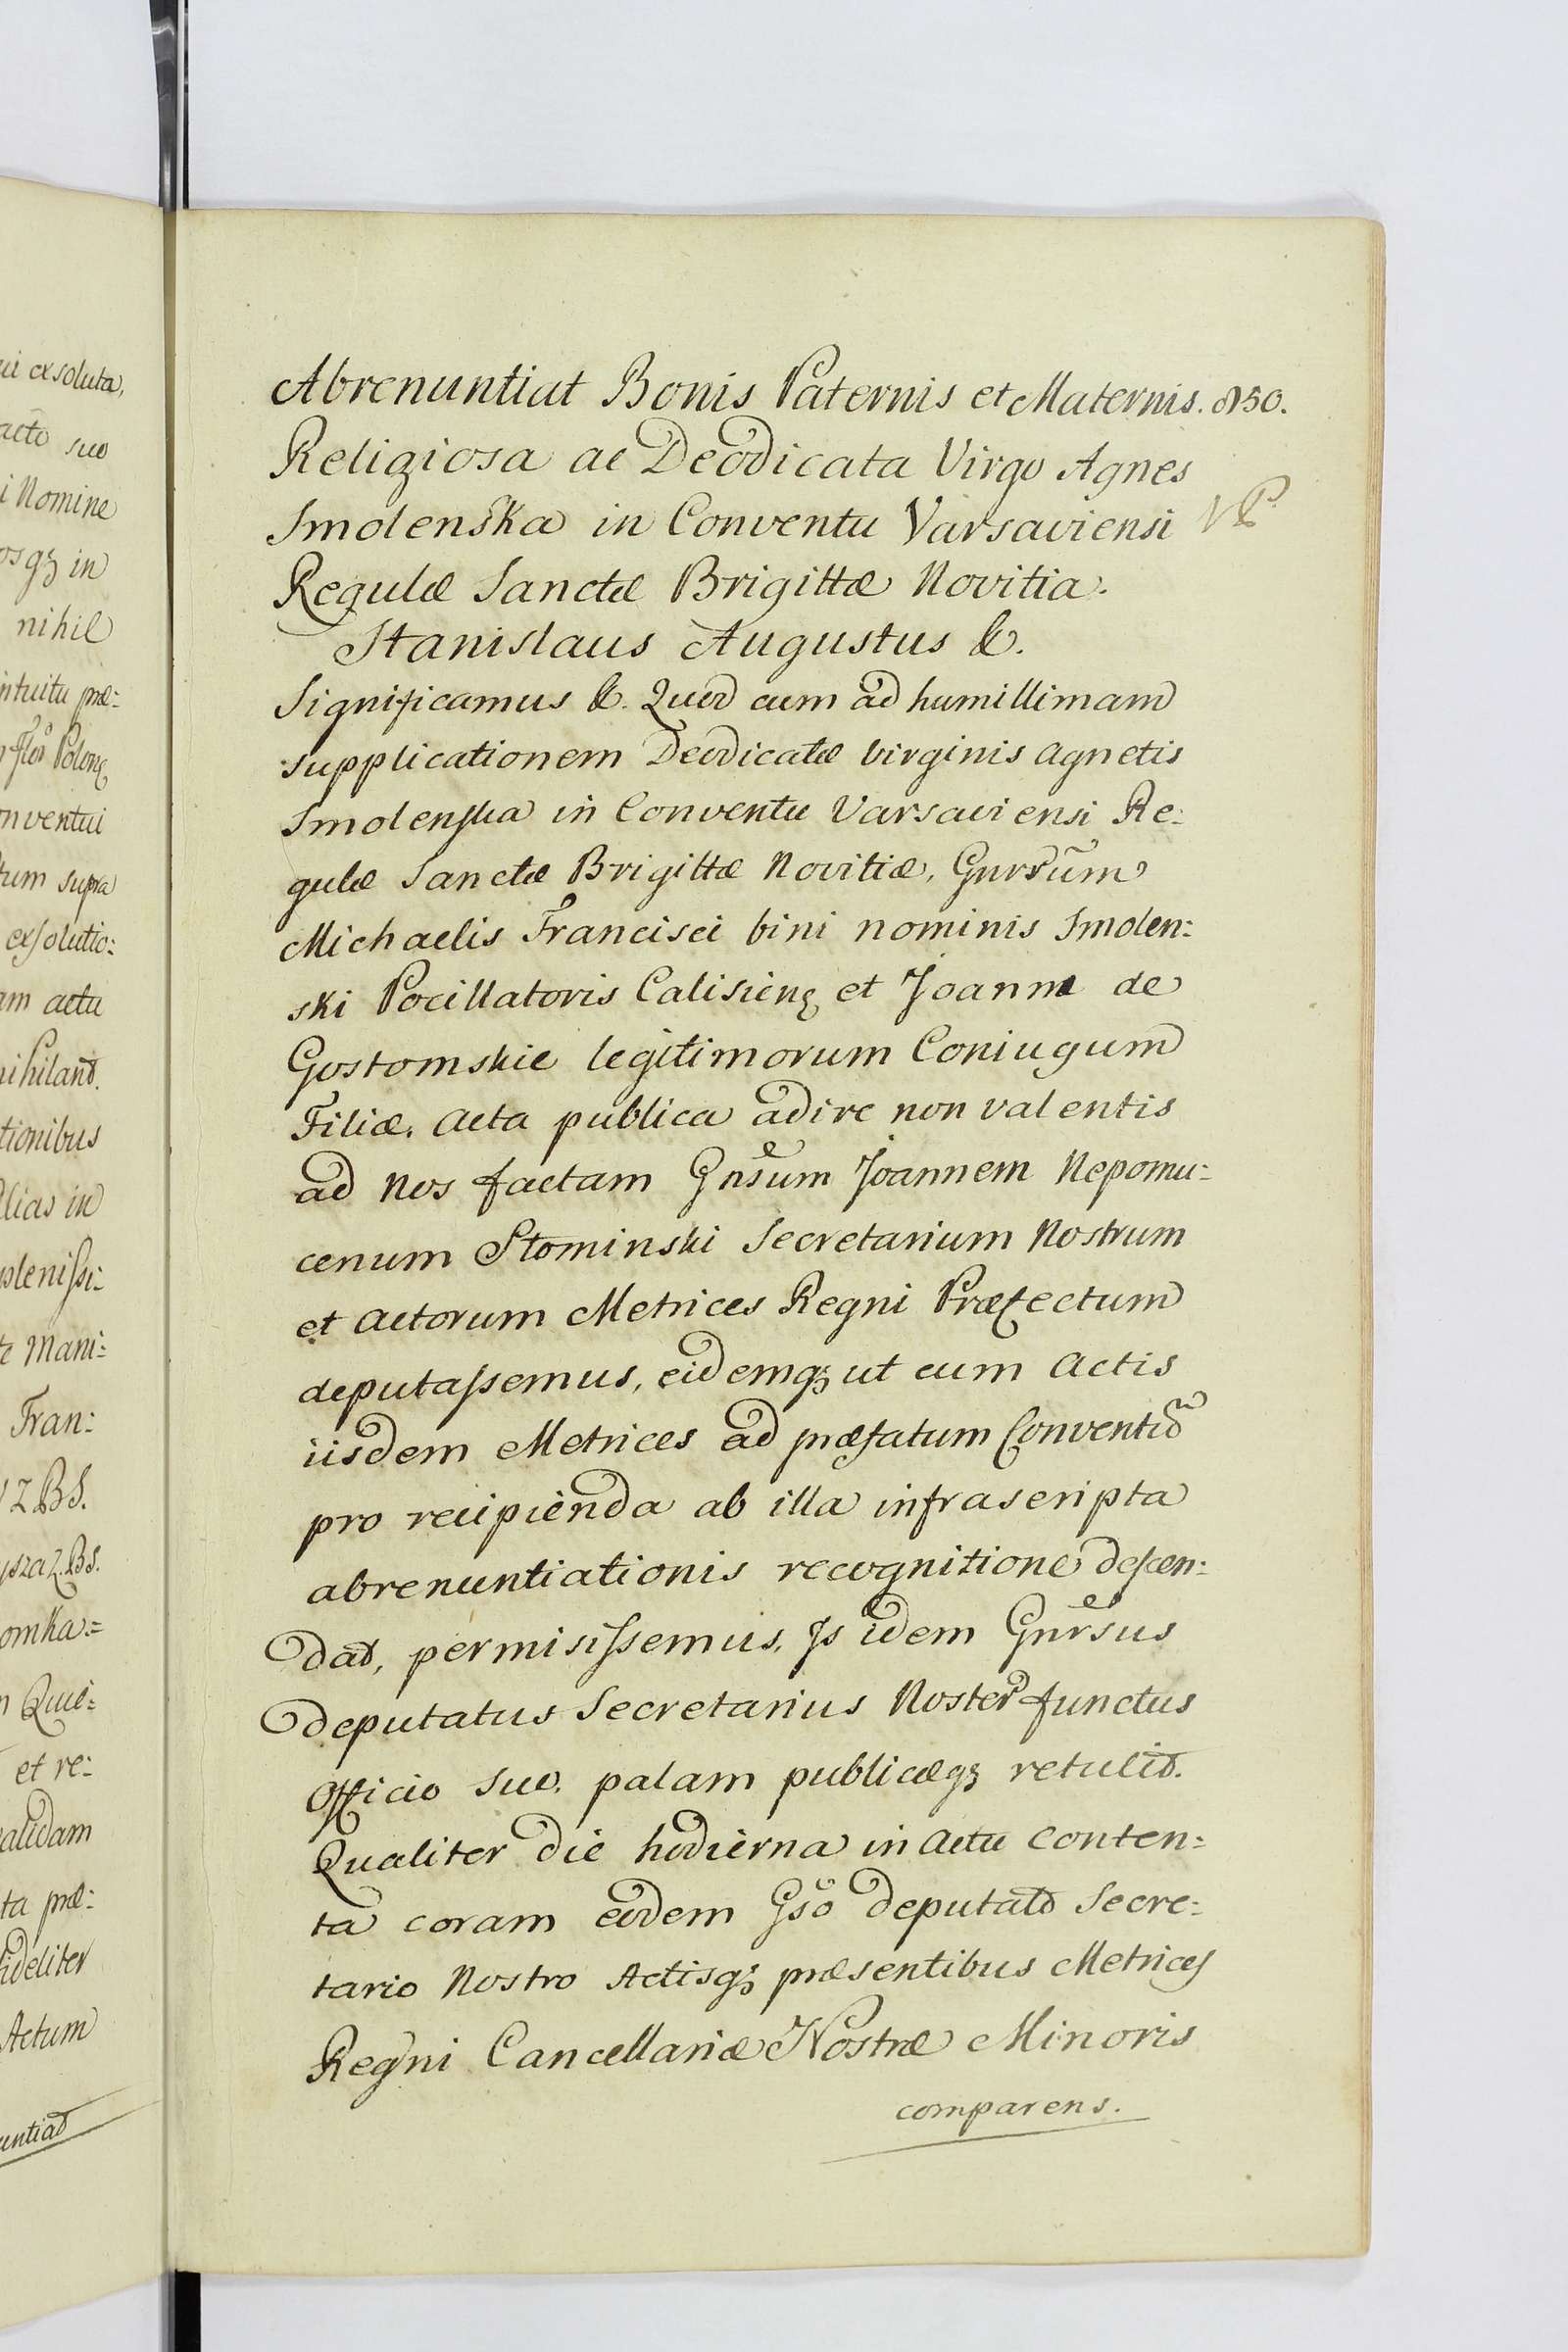 ii exsoluta,
acto suo
i Nomine
osq3 in
nihil
intuitu præ:
Polonę
onventui
tum supra
exsolutio:
am actu
ihiland.
tionibus
lias in
pleniſsi:
te Mani:
Fran:
Z BS.
ysza Z. BS.
omka:=
Qui=
et re:
alidam
ta præ:
ideliter
Actum
untiat
Abrenuntiat Bonis Paternis et Maternis. 850.
Religiosa ac Deodicata Virgo Agnes
Smolenska in Conventu Varsaviensi
Regulæ Sanctæ Brigittæ Novitia.
Stanislaus Augustus &.
Significamus &. Quod cum ad humillimam
supplicationem Deodicatæ Virginis Agnetis
Smolenska in Conventu Varsaviensi Re:
gulæ Sanctæ Brigittæ Novitiæ, Gnrsũm
Michaelis Francisci bini nominis Smolen:
ski Pocillatoris Calisienę et Joannæ de
Gostomskie legitimorum Coniugum
Filiæ, Acta publica adire non valentis
ad Nos factam Gnsum Joannem Nepomu:
cenum Słominski Secretarium Nostrum
et Actorum Metrices Regni Præfectum
deputaſsemus, eidemq3 ut cum Actis
iisdem Metrices ad præfatum Conventũ
pro recipienda ab illa infrascripta
abrenuntiationis recognitione deſcen:
dat, permisiſsemus, Is idem Gnrsus
Deputatus Secretarius Noster functus
Officio suo, palam publiceq3 retulit.
Qualiter die hodierna in Actu conten:
ta coram eodem Gso deputato Secre:
tario Nostro Actisq3 præsentibus Metrices
Regni Cancellariæ Nostræ Minoris
comparens.